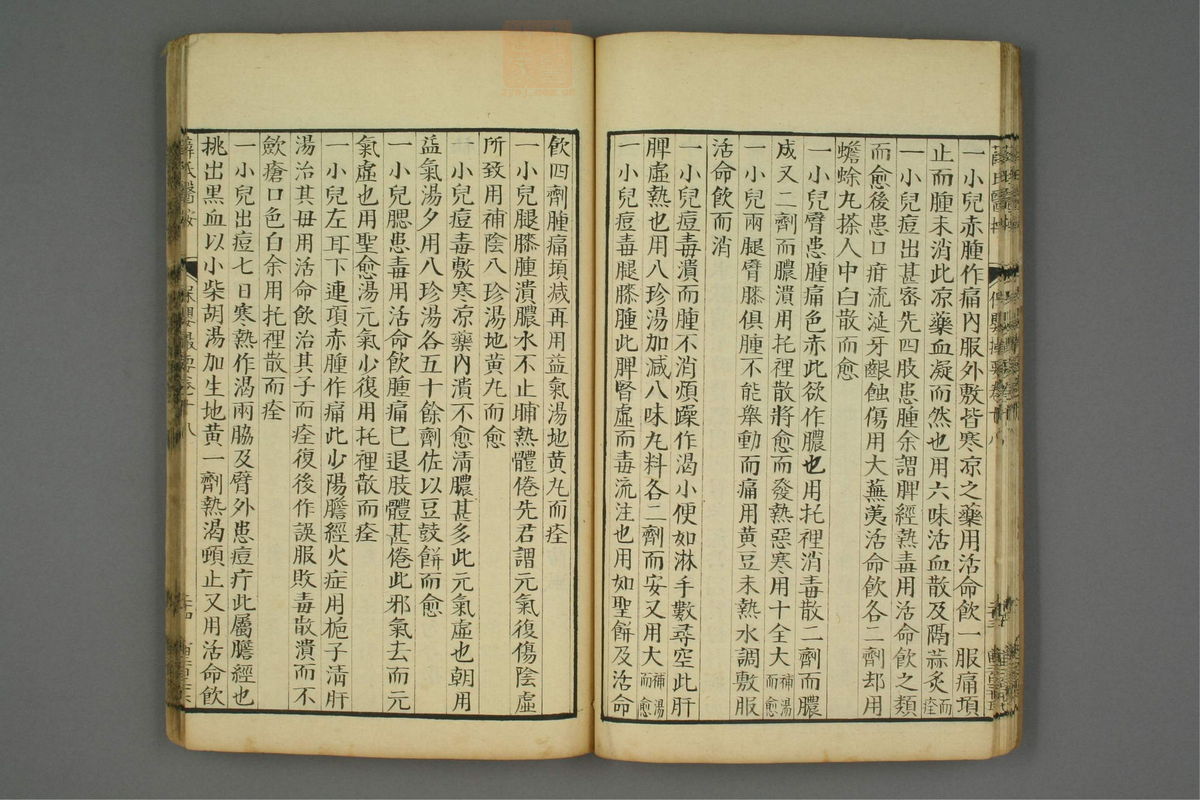 一小兒赤腫作痛内服外敷皆寒凉之藥用活命飲一服痛頓
止而腫未消此凉藥血凝而然也用六味活血散及隔蒜炙而痊
一小兒痘出甚密先四肢患腫余謂脾經熱毒用活命飲之類
而愈後患口疳流涎牙齦蝕傷用大蕪荑活命飲各二劑却用
蟾蜍丸搽人中白散而愈
一小兒臂患腫痛色赤此欲作膿也用托裡消毒散二劑而膿
成又二劑而膿潰用托裡散將愈而發熱惡寒用十全大補湯而愈
一小兒兩腿臂膝俱腫不能舉動而痛用黄豆末熱水調敷服
活命飲而消
一小兒痘毒潰而腫不消煩躁作渴小便如淋手數尋空此肝
脾虛熱也用八珍湯加减八味丸料各二劑而安又用大補湯而愈
一小兒痘毒腿膝腫此脾腎虛而毒流注也用如聖餅及活命
飲四劑腫痛頓减再用益氣湯地黄丸而痊
一小兒腿膝腫潰膿水不止晡熱體倦先君謂元氣復傷陰虛
所致用補陰八珍湯地黄丸而愈
一小兒痘毒敷寒凉藥内潰不愈清膿甚多此元氣虛也朝用
益氣湯夕用八珍湯各五十餘劑佐以豆豉餅而愈
一小兒腮患毒用活命飲腫痛已退肢體甚倦此邪氣去而元
氣虛也用聖愈湯元氣少復用托裡散而痊
一小兒左耳下連項赤腫作痛此少陽膽經火症用梔子清肝
湯治其母用活命飲治其子而痊復後作誤服敗毒散潰而不
斂瘡口色白余用托裡散而痊
一小兒出痘七日寒熱作渴兩脇及臂外患痘疔此屬膽經也
挑出黒血以小柴胡湯加生地黄一劑熱渴頓止又用活命飲
薛氏醫按 保嬰撮要卷十八